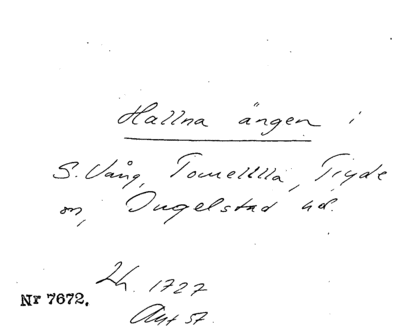 Hallna ängen i
S. Vång, Tomelilla, Tryde
sn, Ingelstad hd.
Lh. 1727
Nr 7672.
Avt st.